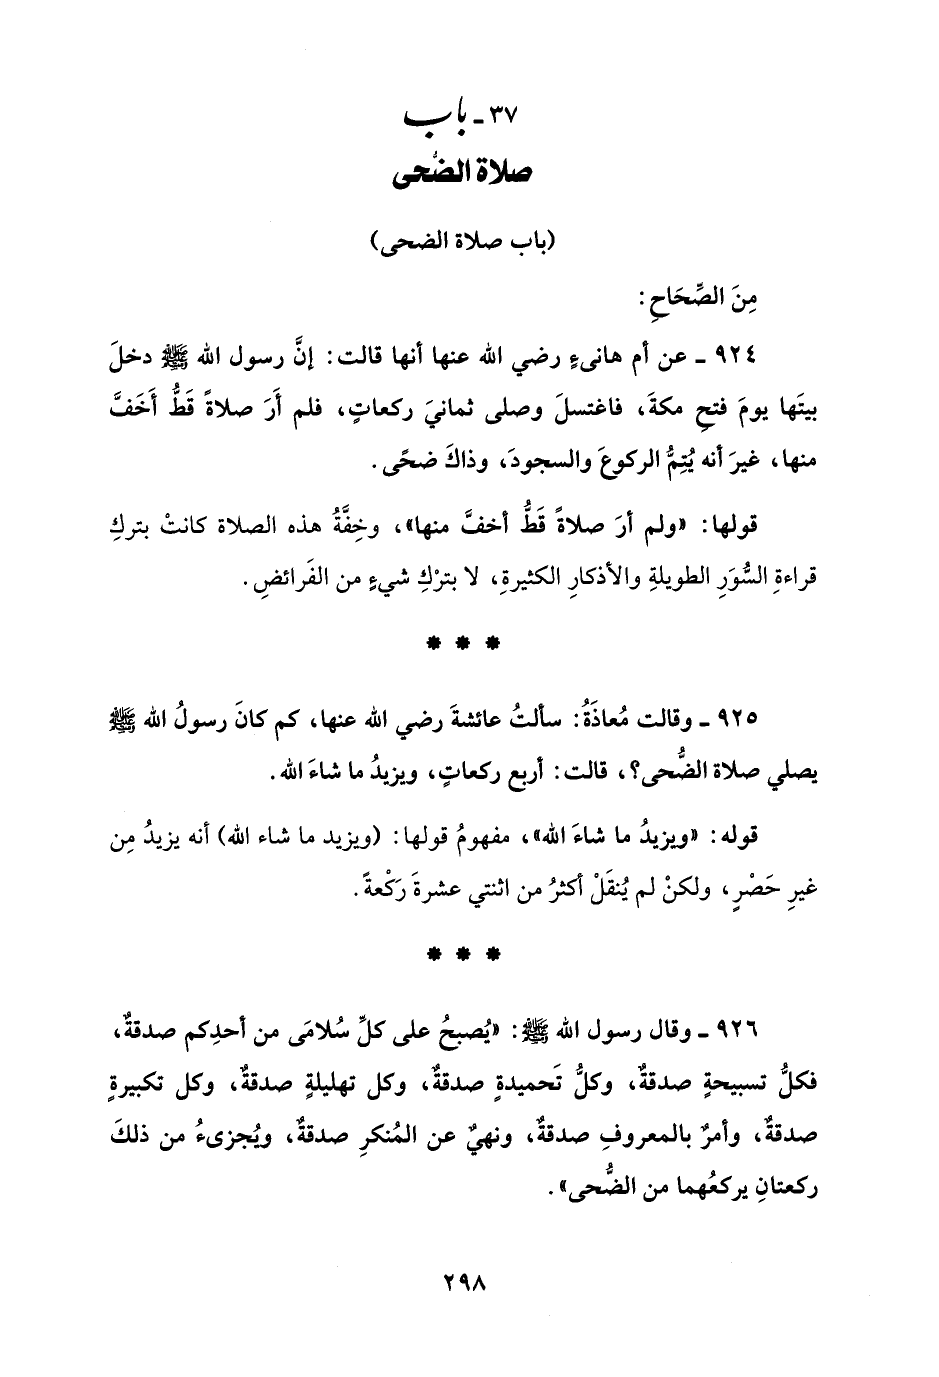 ٣٧ - باب
صلاة الضُّحى
(باب صلاة الضحى)
مِنَ الصِّحَاحِ:
٩٢٤ - عن أم هانىءٍ رضي الله عنها أنها قالت: إنَّ رسول الله ﷺ دخلَ
بيتَها يومَ فتحِ مكةَ، فاغتسلَ وصلى ثمانيَ ركعاتٍ، فلم أَرَ صلاةً قَطُّ أَخَفَّ
منها، غيرَ أنه يُتِمُّ الركوعَ والسجودَ، وذاكَ ضحًى.
قولها: «ولم أرَ صلاةً قَطُّ أخفَّ منها»، وخِفَّةُ هذه الصلاة كانتْ بتركِ
قراءةِ السُّوَرِ الطويلةِ والأذكارِ الكثيرةِ، لا بترْكِ شيءٍ من الفَرائضِ.
* * *
٩٢٥ - وقالت مُعاذَةُ: سألتُ عائشةَ رضي الله عنها، كم كانَ رسولُ الله ﷺ
يصلي صلاةَ الضُّحى؟، قالت: أربع ركعاتٍ، ويزيدُ ما شاءَ الله.
قوله: «ويزيدُ ما شاءَ الله»، مفهومُ قولها: (ويزيد ما شاء الله) أنه يزيدُ مِن
غيرِ حَصْرٍ، ولكنْ لم يُنقَلْ أكثرُ من اثنتي عشرةَ رَكْعةً.
* * *
٩٢٦ - وقال رسول الله ﷺ: «يُصبحُ على كلِّ سُلامَى من أحدِكم صدقةٌ،
فكلُّ تسبيحةٍ صدقةٌ، وكلُّ تَحميدةٍ صدقةٌ، وكل تهليلةٍ صدقةٌ، وكل تكبيرةٍ
صدقةٌ، وأمرٌ بالمعروفِ صدقةٌ، ونهيٌ عن المُنكرِ صدقةٌ، ويُجزىءُ من ذلكَ
ركعتانِ يركعُهما من الضُّحى».
٢٩٨